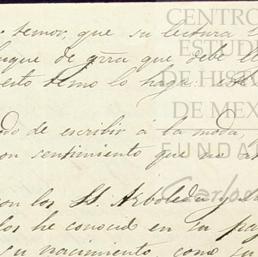 temor, que su lectura
buque de grra que debe
esto temo lo haga
de escribir á la moda,
con sentimiento que
con los SS. Arboleda y
los he conocido en su
su nacimiento como su
CENTRO
ESTUD
DE HISTO
DE MEX
FUNDA
Carlos